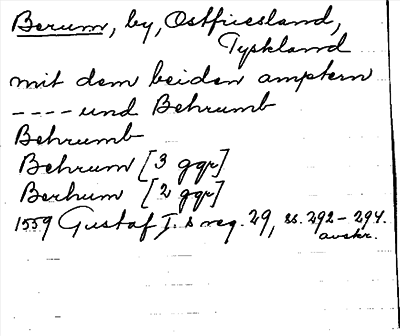 Berum, by, Ostfriesland,
Tyskland
mit dem beiden amptern
---- und Behrumb
Behrumb
Behrum [3 ggr]
Berhum [2 ggr]
1559 Gustaf I:s reg. 29, ss. 292-294.
avskr.